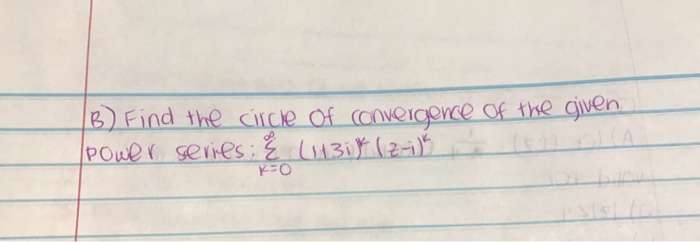 B) Find the circle of convergence of the given
power series: ∞ Σ k=0 (1+3i)^k (z-i)^k